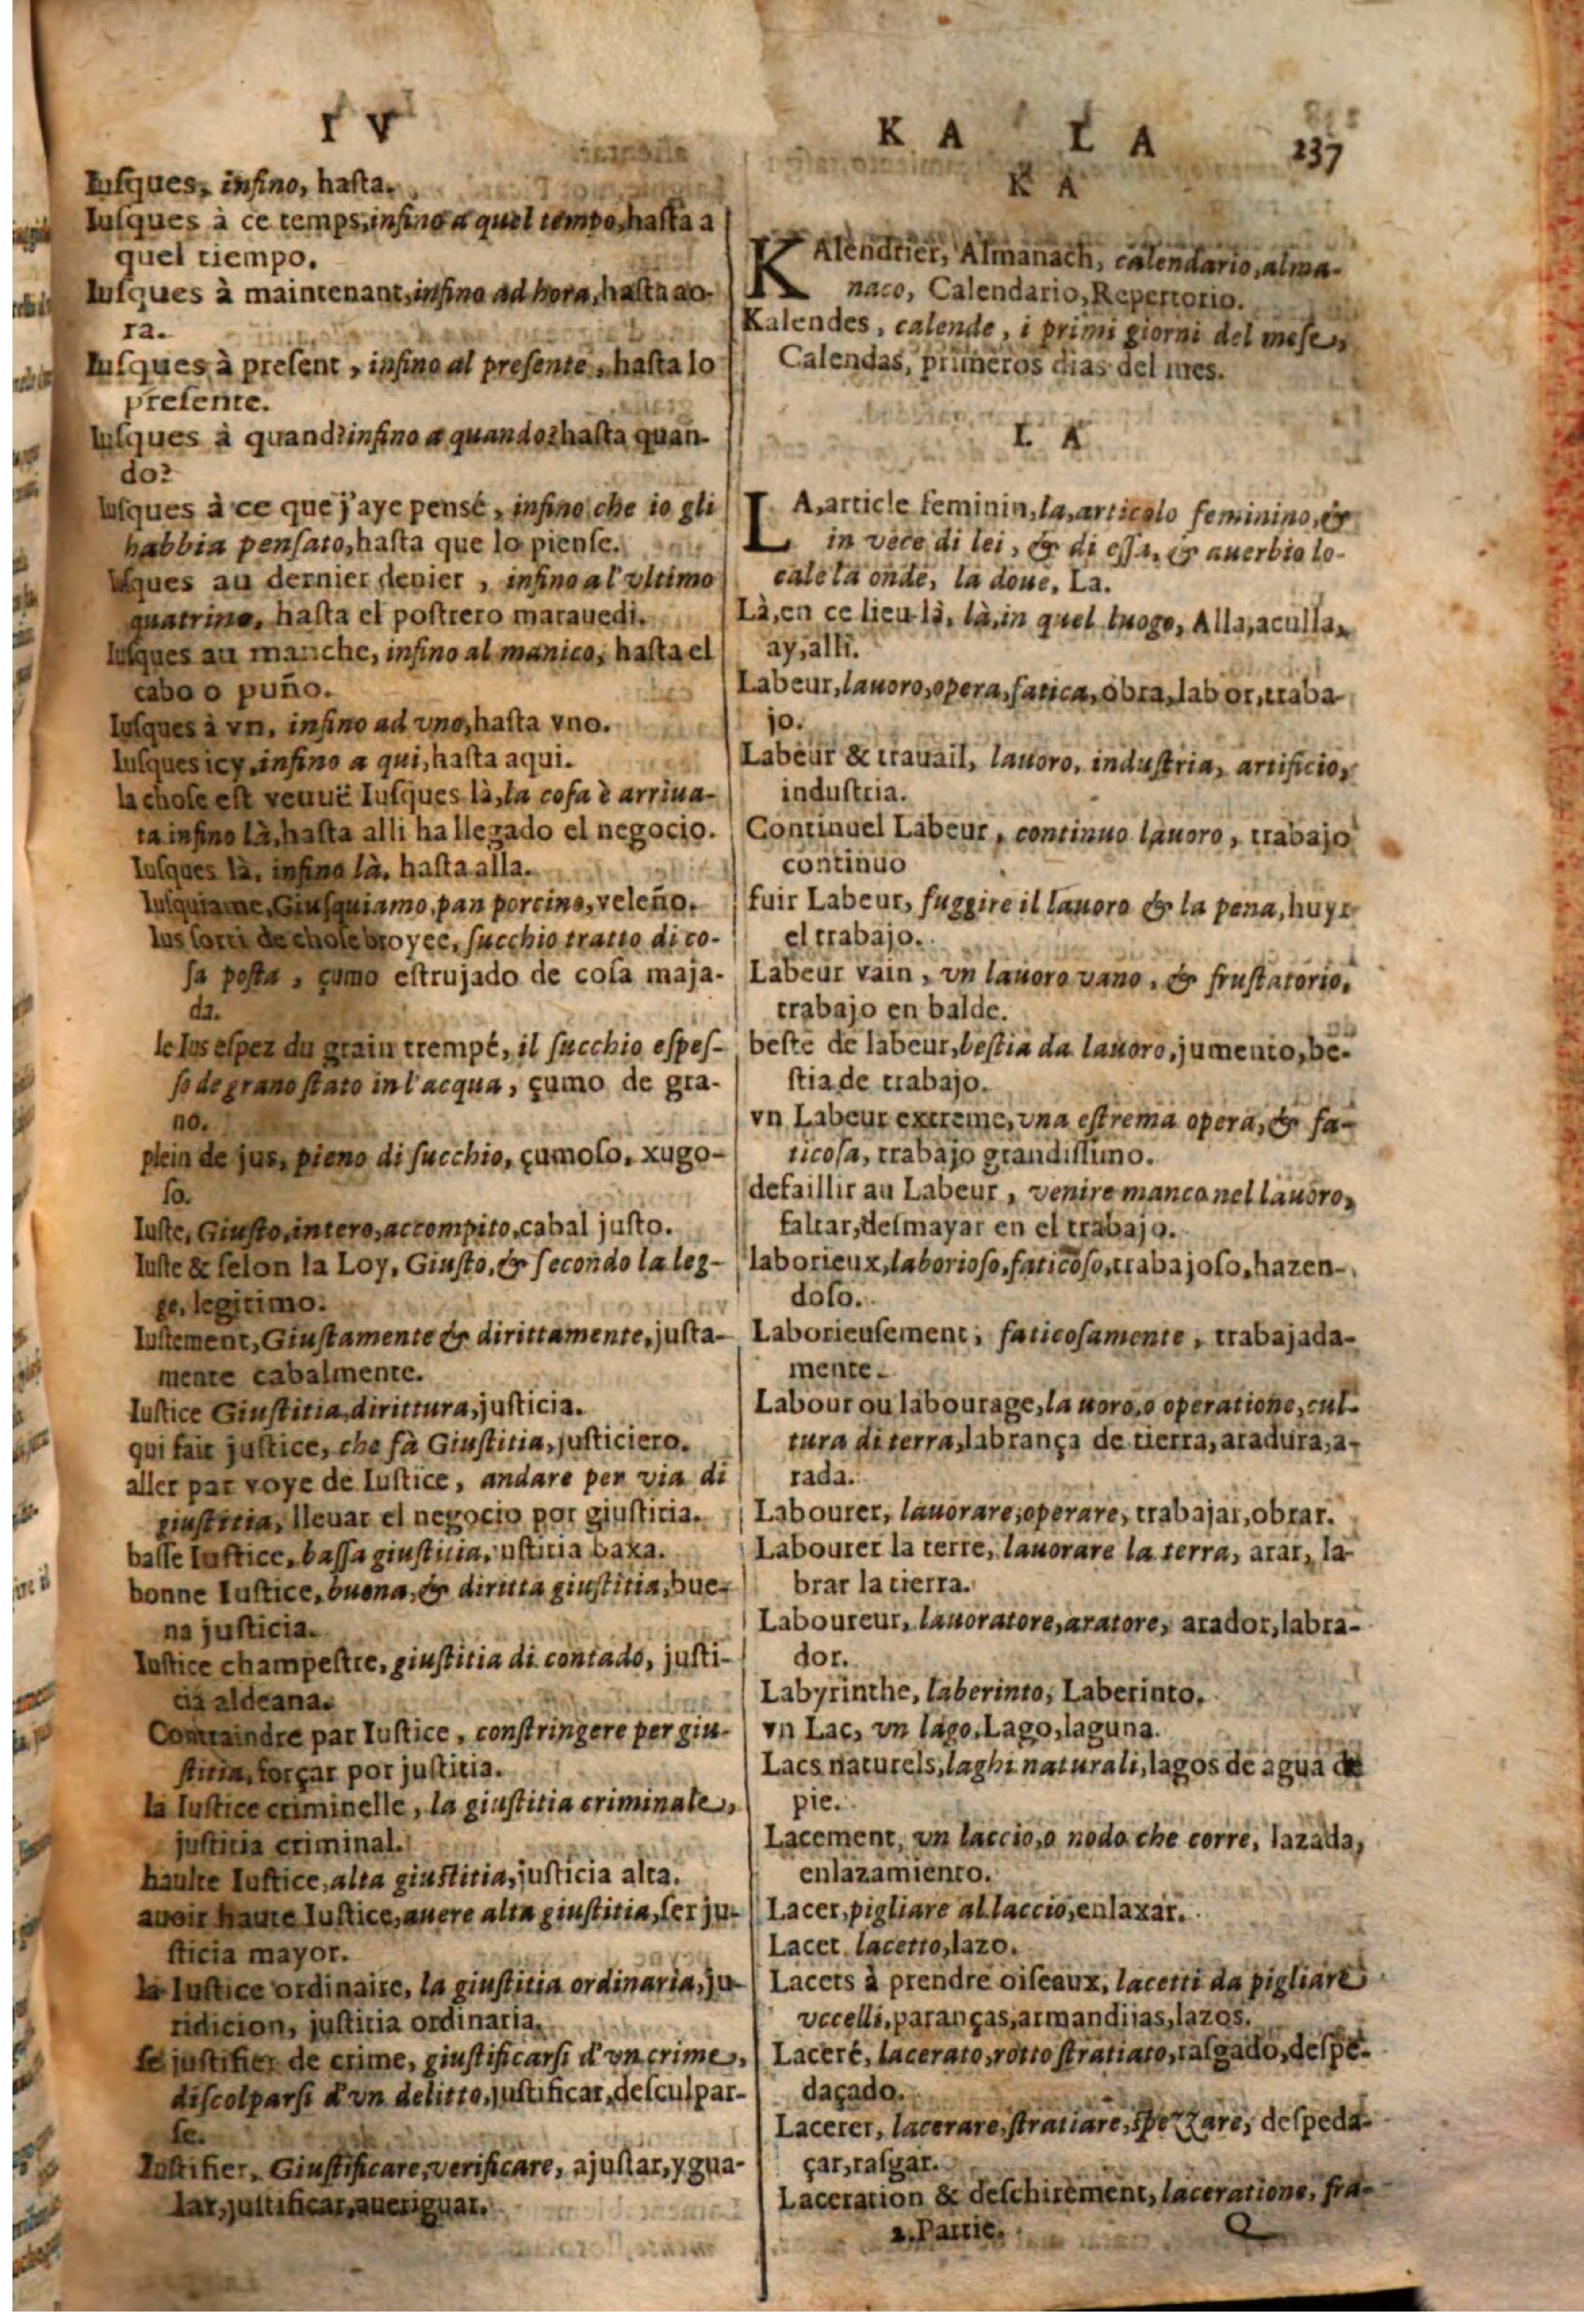 I V
Iuſques, infino, haſta.
Iuſques à ce temps, infino a quel tempo, haſta a
quel tiempo.
Iuſques à maintenant, infino ad hora, haſta ao-
ra.
Iuſques à preſent, infino al preſente, haſta lo
preſente.
Iuſques à quand? infino a quando? haſta quan-
do?
Iuſques à ce que j'aye pensé, infino che io gli
habbia penſato, haſta que lo pienſe.
Iuſques au dernier denier, infino a l'vltimo
quatrino, haſta el poſtrero marauedi.
Iuſques au manche, infino al manico, haſta el
cabo o puño.
Iuſques à vn, infino ad vno, haſta vno.
Iuſques icy, infino a qui, haſta aqui.
la choſe eſt venuë Iuſques là, la coſa è arriua-
ta infino là, haſta alli ha llegado el negocio.
Iuſques là, infino là, haſta alla.
Iuſquiame, Giuſquiamo, pan porcino, veleño.
Ius ſorti de choſe broyee, ſucchio tratto di co-
ſa peſta, çumo eſtrujado de coſa maja-
da.
le Ius eſpez du grain trempé, il ſucchio eſpeſ-
ſo de grano ſtato in l'acqua, çumo de gra-
no.
plein de jus, pieno di ſucchio, çumoſo, xugo-
ſo.
Iuſte, Giuſto, intero, accompito, cabal juſto.
Iuſte & ſelon la Loy, Giuſto, & ſecondo la leg-
ge, legitimo.
Iuſtement, Giuſtamente & dirittamente, juſta-
mente cabalmente.
Iuſtice Giuſtitia, dirittura, juſticia.
qui fait juſtice, che fà Giuſtitia, juſticiero.
aller par voye de Iuſtice, andare per via di
giuſtitia, lleuar el negocio por giuſticia.
baſſe Iuſtice, baſſa giuſtitia, juſtitia baxa.
bonne Iuſtice, buona, & diritta giuſtitia, bue-
na juſticia.
Iuſtice champeſtre, giuſtitia di contado, juſti-
cia aldeana.
Contraindre par Iuſtice, conſtringere per giu-
ſtitia, forçar por juſtitia.
la Iuſtice criminelle, la giuſtitia criminale,
juſtitia criminal.
haulte Iuſtice, alta giuſtitia, juſticia alta.
auoir haute Iuſtice, auere alta giuſtitia, ſer ju-
ſticia mayor.
la Iuſtice ordinaire, la giuſtitia ordinaria, ju-
ridicion, juſtitia ordinaria.
ſe juſtifier de crime, giuſtificarſi d'vn crime,
diſcolparſi d'vn delitto, juſtificar, deſculpar-
ſe.
Iuſtifier, Giuſtificare, verificare, ajuſtar, ygua-
lar, juſtificar, aueriguar.
K A L A 237
K A
KAlendrier, Almanach, calendario, alma-
naco, Calendario, Repertorio.
Kalendes, calende, i primi giorni del meſe,
Calendas, primeros dias del mes.
L A
LA, article feminin, la, articolo feminino, &
in vece di lei, & di eſſa, & auerbio lo-
cale la onde, la doue, La.
Là, en ce lieu là, là, in quel luogo, Alla, aculla,
ay, alli.
Labeur, lauoro, opera, fatica, obra, labor, traba-
jo.
Labeur & trauail, lauoro, induſtria, artificio,
induſtria.
Continuel Labeur, continuo lauoro, trabajo
continuo
fuir Labeur, fuggire il lauoro & la pena, huyr
el trabajo.
Labeur vain, vn lauoro vano, & fruſtatorio,
trabajo en balde.
beſte de labeur, beſtia da lauoro, jumento, be-
ſtia de trabajo.
vn Labeur extreme, vna eſtrema opera, & fa-
ticoſa, trabajo grandiſſimo.
defaillir au Labeur, venire manco nel lauoro,
faltar, deſmayar en el trabajo.
laborieux, laborioſo, faticoſo, trabajoſo, hazen-
doſo.
Laborieuſement, faticoſamente, trabajada-
mente.
Labour ou labourage, la uoro, o operatione, cul-
tura di terra, labrança de tierra, aradura, a-
rada.
Labourer, lauorare, operare, trabajar, obrar.
Labourer la terre, lauorare la terra, arar, la-
brar la tierra.
Laboureur, lauoratore, aratore, arador, labra-
dor.
Labyrinthe, laberinto, Laberinto.
vn Lac, vn lago, Lago, laguna.
Lacs naturels, laghi naturali, lagos de agua de
pie.
Lacement, vn laccio, o nodo che corre, lazada,
enlazamiento.
Lacer, pigliare al laccio, enlaxar.
Lacet lacetto, lazo.
Lacets à prendre oiſeaux, lacetti da pigliare
vccelli, paranças, armandijas, lazos.
Laceré, lacerato, rotto ſtratiato, raſgado, deſpe-
daçado.
Lacerer, lacerare, ſtratiare, ſpezzare, deſpeda-
çar, raſgar.
Laceration & deſchirement, laceratione, fra-
2. Partie. Q